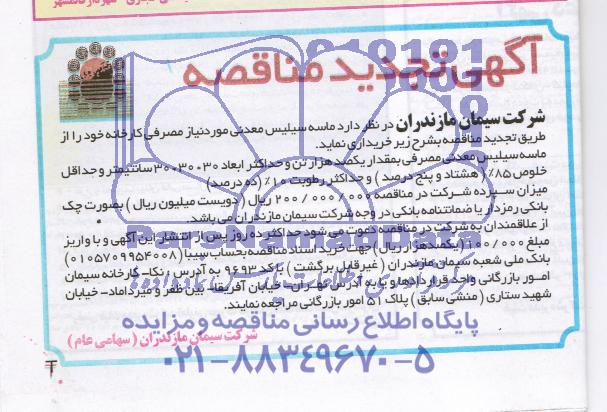 آگهی تجدید مناقصه
شرکت سیمان مازندران در نظر دارد ماسه سیلیس معدنی مورد نیاز مصرفی کارخانه خود را از
طریق تجدید مناقصه بشرح زیر خریداری نماید.
ماسه سیلیس معدنی مصرفی بمقدار یکصد هزار تن و حداکثر ابعاد ۳۰×۳۰×۳۰ سانتیمتر و حداقل
خلوص ۸۵٪ (هشتاد و پنج درصد) و حداکثر رطوبت ۱۰٪ (ده درصد)
میزان سپرده شرکت در مناقصه ۲۰۰/۰۰۰/۰۰۰ ریال (دویست میلیون ریال) بصورت چک
بانکی رمزدار یا ضمانتنامه بانکی در وجه شرکت سیمان مازندران می باشد.
از علاقمندان به شرکت در مناقصه دعوت می شود حداکثر ده روز پس از انتشار این آگهی و با واریز
مبلغ ۱۰۰/۰۰۰ (یکصد هزار ریال) جهت خرید اسناد مناقصه بحساب سیبا (۰۱۰۵۷۰۹۹۵۴۰۰۸)
بانک ملی شعبه سیمان مازندران (غیرقابل برگشت) با کد ۹۶۹۳ به آدرس: نکا- کارخانه سیمان
امور بازرگانی واحد قراردادها و یا به آدرس تهران- خیابان آفریقا- بین ظفر و میرداماد- خیابان
شهید ستاری (منشی سابق) پلاک ۵۱ امور بازرگانی مراجعه نمایند.
شرکت سیمان مازندران (سهامی عام)
پایگاه اطلاع رسانی مناقصه و مزایده
۰۲۱-۸۸۳۴۹۶۷۰-۵